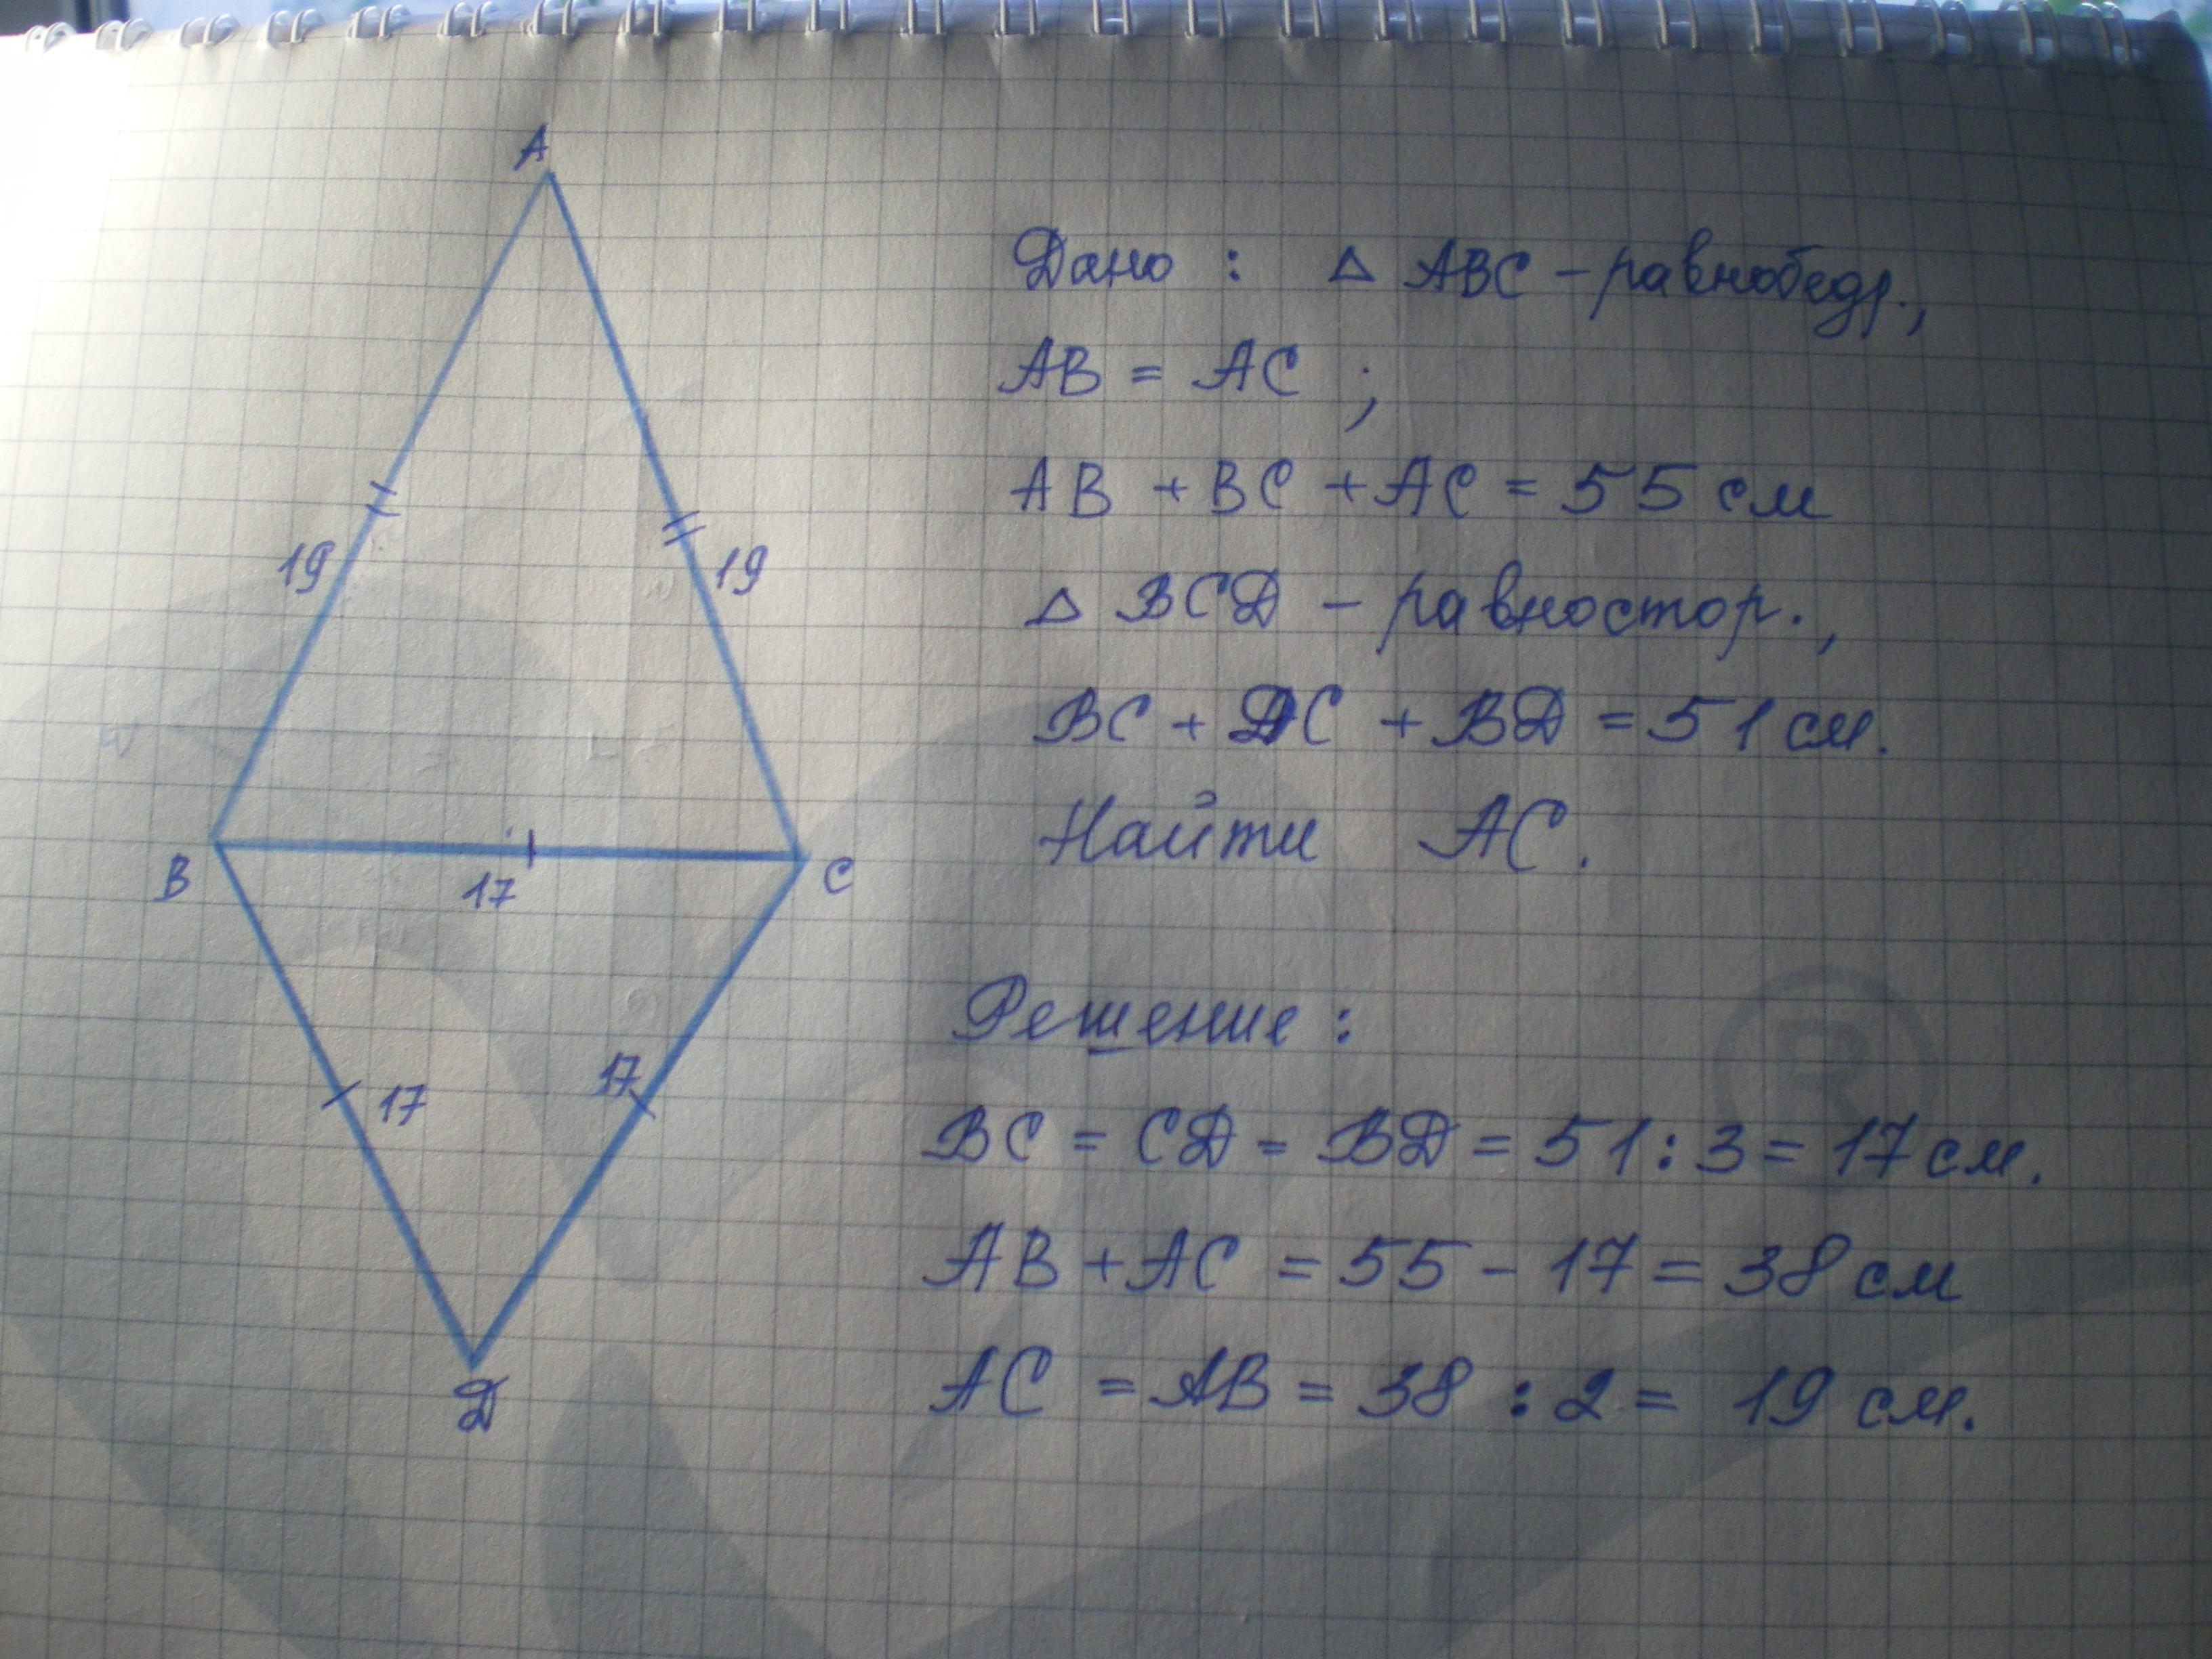 A
19
19
B
17
C
17
17
D
Дано : △ ABC – равнобедр.,
AB = AC ;
AB + BC + AC = 55 см
△ BCD – равностор.,
BC + DC + BD = 51 см.
Найти AC.
Решение :
BC = CD = BD = 51 : 3 = 17 см.
AB + AC = 55 – 17 = 38 см
AC = AB = 38 : 2 = 19 см.
®